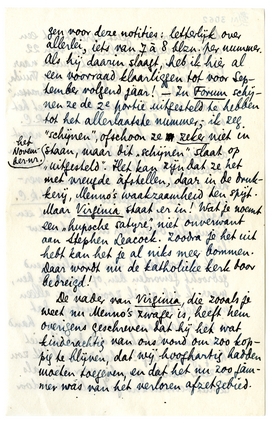 gen voor deze notities: letterlijk over
allerlei, iets van 7 à 8 blzn. per nummer.
Als hij daarin slaagt, heb ik hier al
een voorraad klaarliggen tot voor Sep-
tember volgend jaar! — In Forum schij-
nen ze de 2e portie uitgesteld te hebben
tot het allerlaatste nummer; ik zeg
"schijnen", ofschoon ze zeker niet in
het Novem-
bernr.
staan, maar dit "schijnen" slaat op
"uitgesteld". Het kan zijn dat ze het
met vreugde afstellen, daar in de druk-
kerij, Menno's waakzaamheid ten spijt.
Maar Virginia staat er in! Wat je noemt
een "hupsche satyre", niet onverwant
aan Stephen Leacock. Zoodra je het uit
hebt kan het je al niks meer bommen.
Daar wordt nu de katholieke kerk door
bedreigd!
De vader van Virginia, die zooals je
weet nu Menno's zwager is, heeft hem
overigens geschreven dat hij het wat
kinderachtig van ons vond om zoo kop-
pig te blijven, dat wij hooghartig hadden
moeten toegeven, en dat het nu zoo jam-
mer was van het verloren afzetgebied.